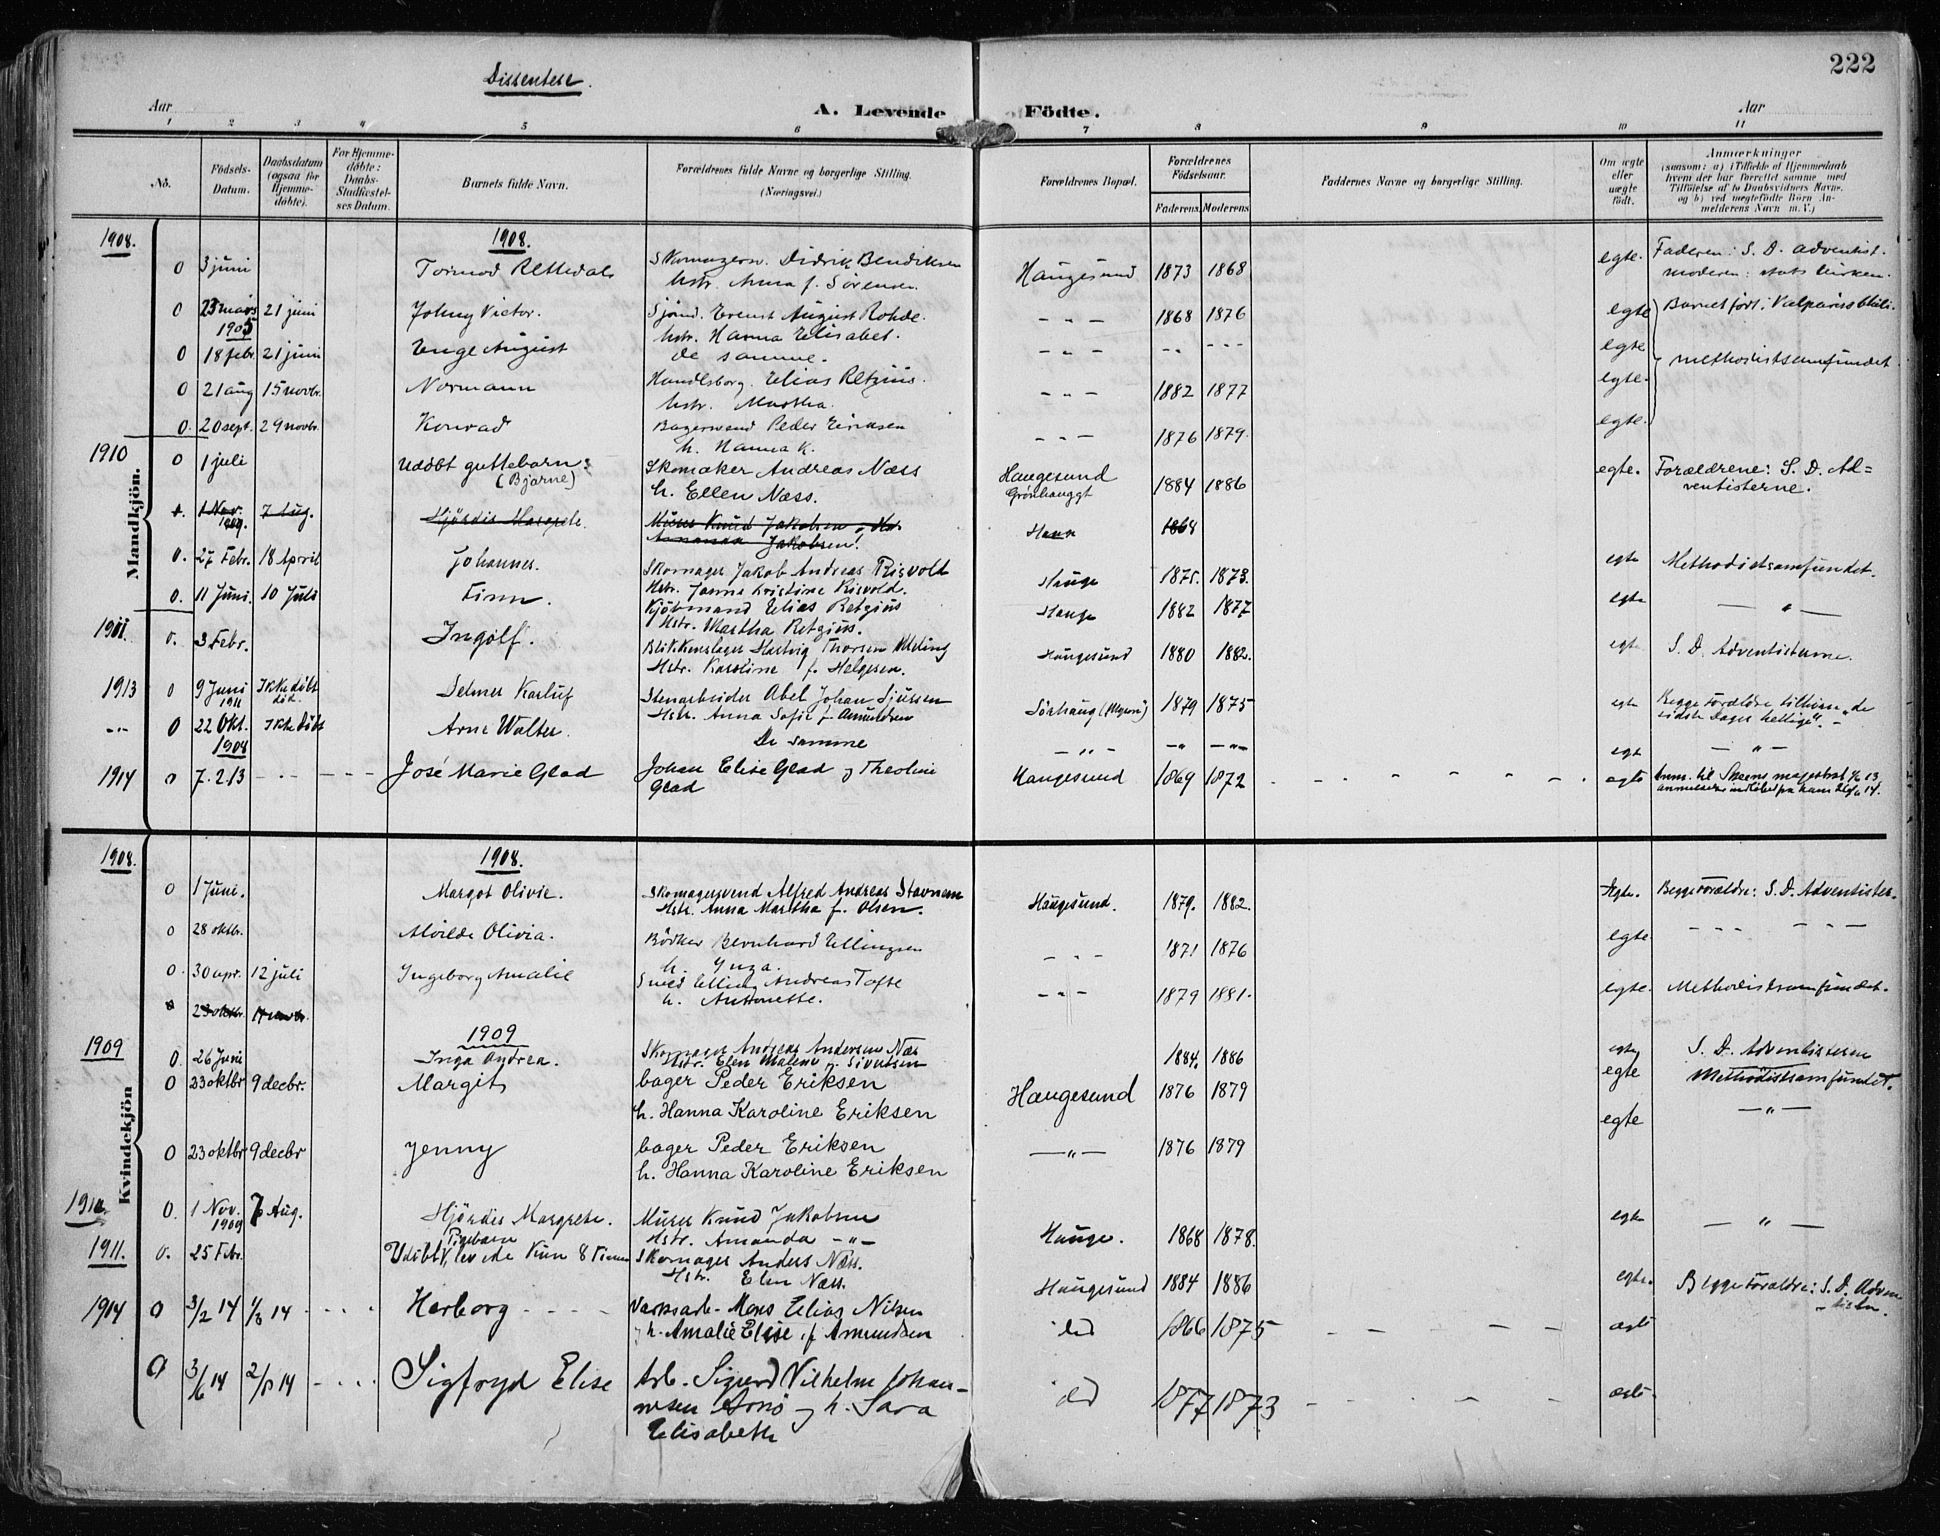 222
Dissentere.
Aar
A. Levende Födte.
Aar
1 2 3 4 5 6 7 8 9 10 11
No.
Födsels-Datum.
Daabsdatum (ogsaa for Hjemme-döbte).
For Hjemme-döbte: Daabs-Stadfæstel-ses Datum.
Barnets fulde Navn.
Forældrenes fulde Navne og borgerlige Stilling. (Næringsvei.)
Forældrenes Bopæl.
Forældrenes Födselsaar.
Faderens. Moderens.
Faddernes Navne og borgerlige Stilling.
Om ægte eller uægte født.
Anmærkninger
(saasom: a) i Tilfælde af Hjemmedaab
hvem der har forrettet samme med
Tilföielse af to Daabsvidners Navne.
og b) ved uægtefödte Börn An-
melderens Navn m. V.)
1908. 1908.
0 3 juni Tormod Rettedal Skomagersv. Didrik Bendiksen Haugesund 1873 1868 egte. Faderen: S. D. Adventist.
hstr. Anna f. Sörensen moderen: statskirken.
0 23 mars 1905 21 juni Johny Victor. Sjömd. Ernst August Rohde. - " - 1868 1876 egte Barnet født i Valparaiso Chili.
hstr. Hanna Elisabet.
0 18 febr. 21 juni Enge August De samme. - " - - - - - - egte methodistsamfundet.
0 21 aug 15 novbr. Normann Handelsborg. Elias Retzius. - " - 1882 1877 egte.
hstr. Martha.
0. 20 sept. 29 novbr. Konrad Bagersvend Peder Eriksen - " - 1876 1879. egte.
h. Hanna K.
Mandkjön.
1910 0 1 juli Udöbt guttebarn: (Bjarne) Skomaker Andreas Næss Haugesund Grønhauggt 1884 1886 egte. Forældrene: S. D. Ad=
h. Ellen Næss. ventisterne.
1 Nov. 1909. 7 Aug. Hjördis Margrete. Murer Knud Jakobsen og Hst. Haun 1868
Amanda Jakobsen!
0. 27 Febr. 18 April Johannes. Skomager Jakob Andreas Risvold Hauge 1875. 1873. egte Methodistsamfundet.
Hstr. Janne Kristine Risvold.
0. 11 Juni. 10 Juli Finn. Kjöbmand Elias Retzius Hauge 1882 1877 egte - " -
Hstr. Martha Retzius.
1911 0. 3 Febr. Ingolf. Blikkenslager Hartvig Thorsen Haugesund 1880 1882. egte S. D. Adventisterne.
Hstr. Karoline f. Helgesen.
1913 0 9 Juni 1911 Ikke döbt Selmer Karluf Stenarbeider Abel Johan Sjursen Sörhaug 1879 1875 egte Begge Forældre tilhøre "de
Hstr. Anna Sofie f. Amundsen sidste Dages hellige". -
- " - 0 22 Okt. 1908 Ikke döbt Arne Walter. De samme - " - - " - " - egt - " -
1914 0 7.2.13 - - - - José Marie Glad Johan Elise Glad og Theoline Haugesund 1869 1872 - - - egte Anm. til Skeens magistrat 13
Glad
1908. 1908.
0 1 Juni. Margot Olivie. Skomagersvend Alfred Andreas Stavnem Haugesund. 1879. 1882. egte. Begge Forældre: S. D. Adventister.
Hstr. Anna Martha f. Olsen.
0 28 oktbr. Alvilde Olivia. Bödker Bernhard Ellingsen - " - 1871 1876 egte - - - - - -
h. Inga.
0. 30 apr. 12 juli Ingeborg Amalie Smed Elling Andreas Tofte - " - 1879 1881. egte. Methodistsamfundet.
h. Antonette.
23 oktbr. 11 novbr.
1909 1909
0. 26 Juni Inga Andrea. Skomager Andreas Andersen Næs 1884. 1886 egte S. D. Adventisterne
Hstr. Elen Malene f. Sivertsen
0 23 oktbr 9 decbr. Margit bager Peder Eriksen Haugesund 1876 1879 egte Methodistsamfundet.
h. Hanna Karoline Eriksen
Kvindekjön
0 23 oktbr 9 decbr Jenny bager Peder Eriksen - " - 1876 1879 egte - " -
h. Hanna Karoline Eriksen
1910 0. 1 Nov. 1909 7 Aug. Hjördis Margrete. Murer Knud Jakobsen Hauge. 1868 1878. egte - " -
Hstr. Amanda - " -
1911. 0. 25 Febr. Pigebarn Udöbt, levede kun 8 Timer Skomager Anders Næss. Haugesund 1884 1886 egte. Begge Forældre: S. D. Adven-
Hstr. Elen Næss. tister.
1914 0 3/2 14 1/3 14 - - - Herborg - - - Verksarb. Mons Elias Nilsen 1866 1875 - - - ægte
h. Amalie Elise f. Amundsen
0 3/6 14 2/8 14 - - - Sigfryd Elise Arb. Sigurd Vilhelm Johan- 1877 1873 - - - ægte
nesen Arnö og h. Sara
Elisabeth